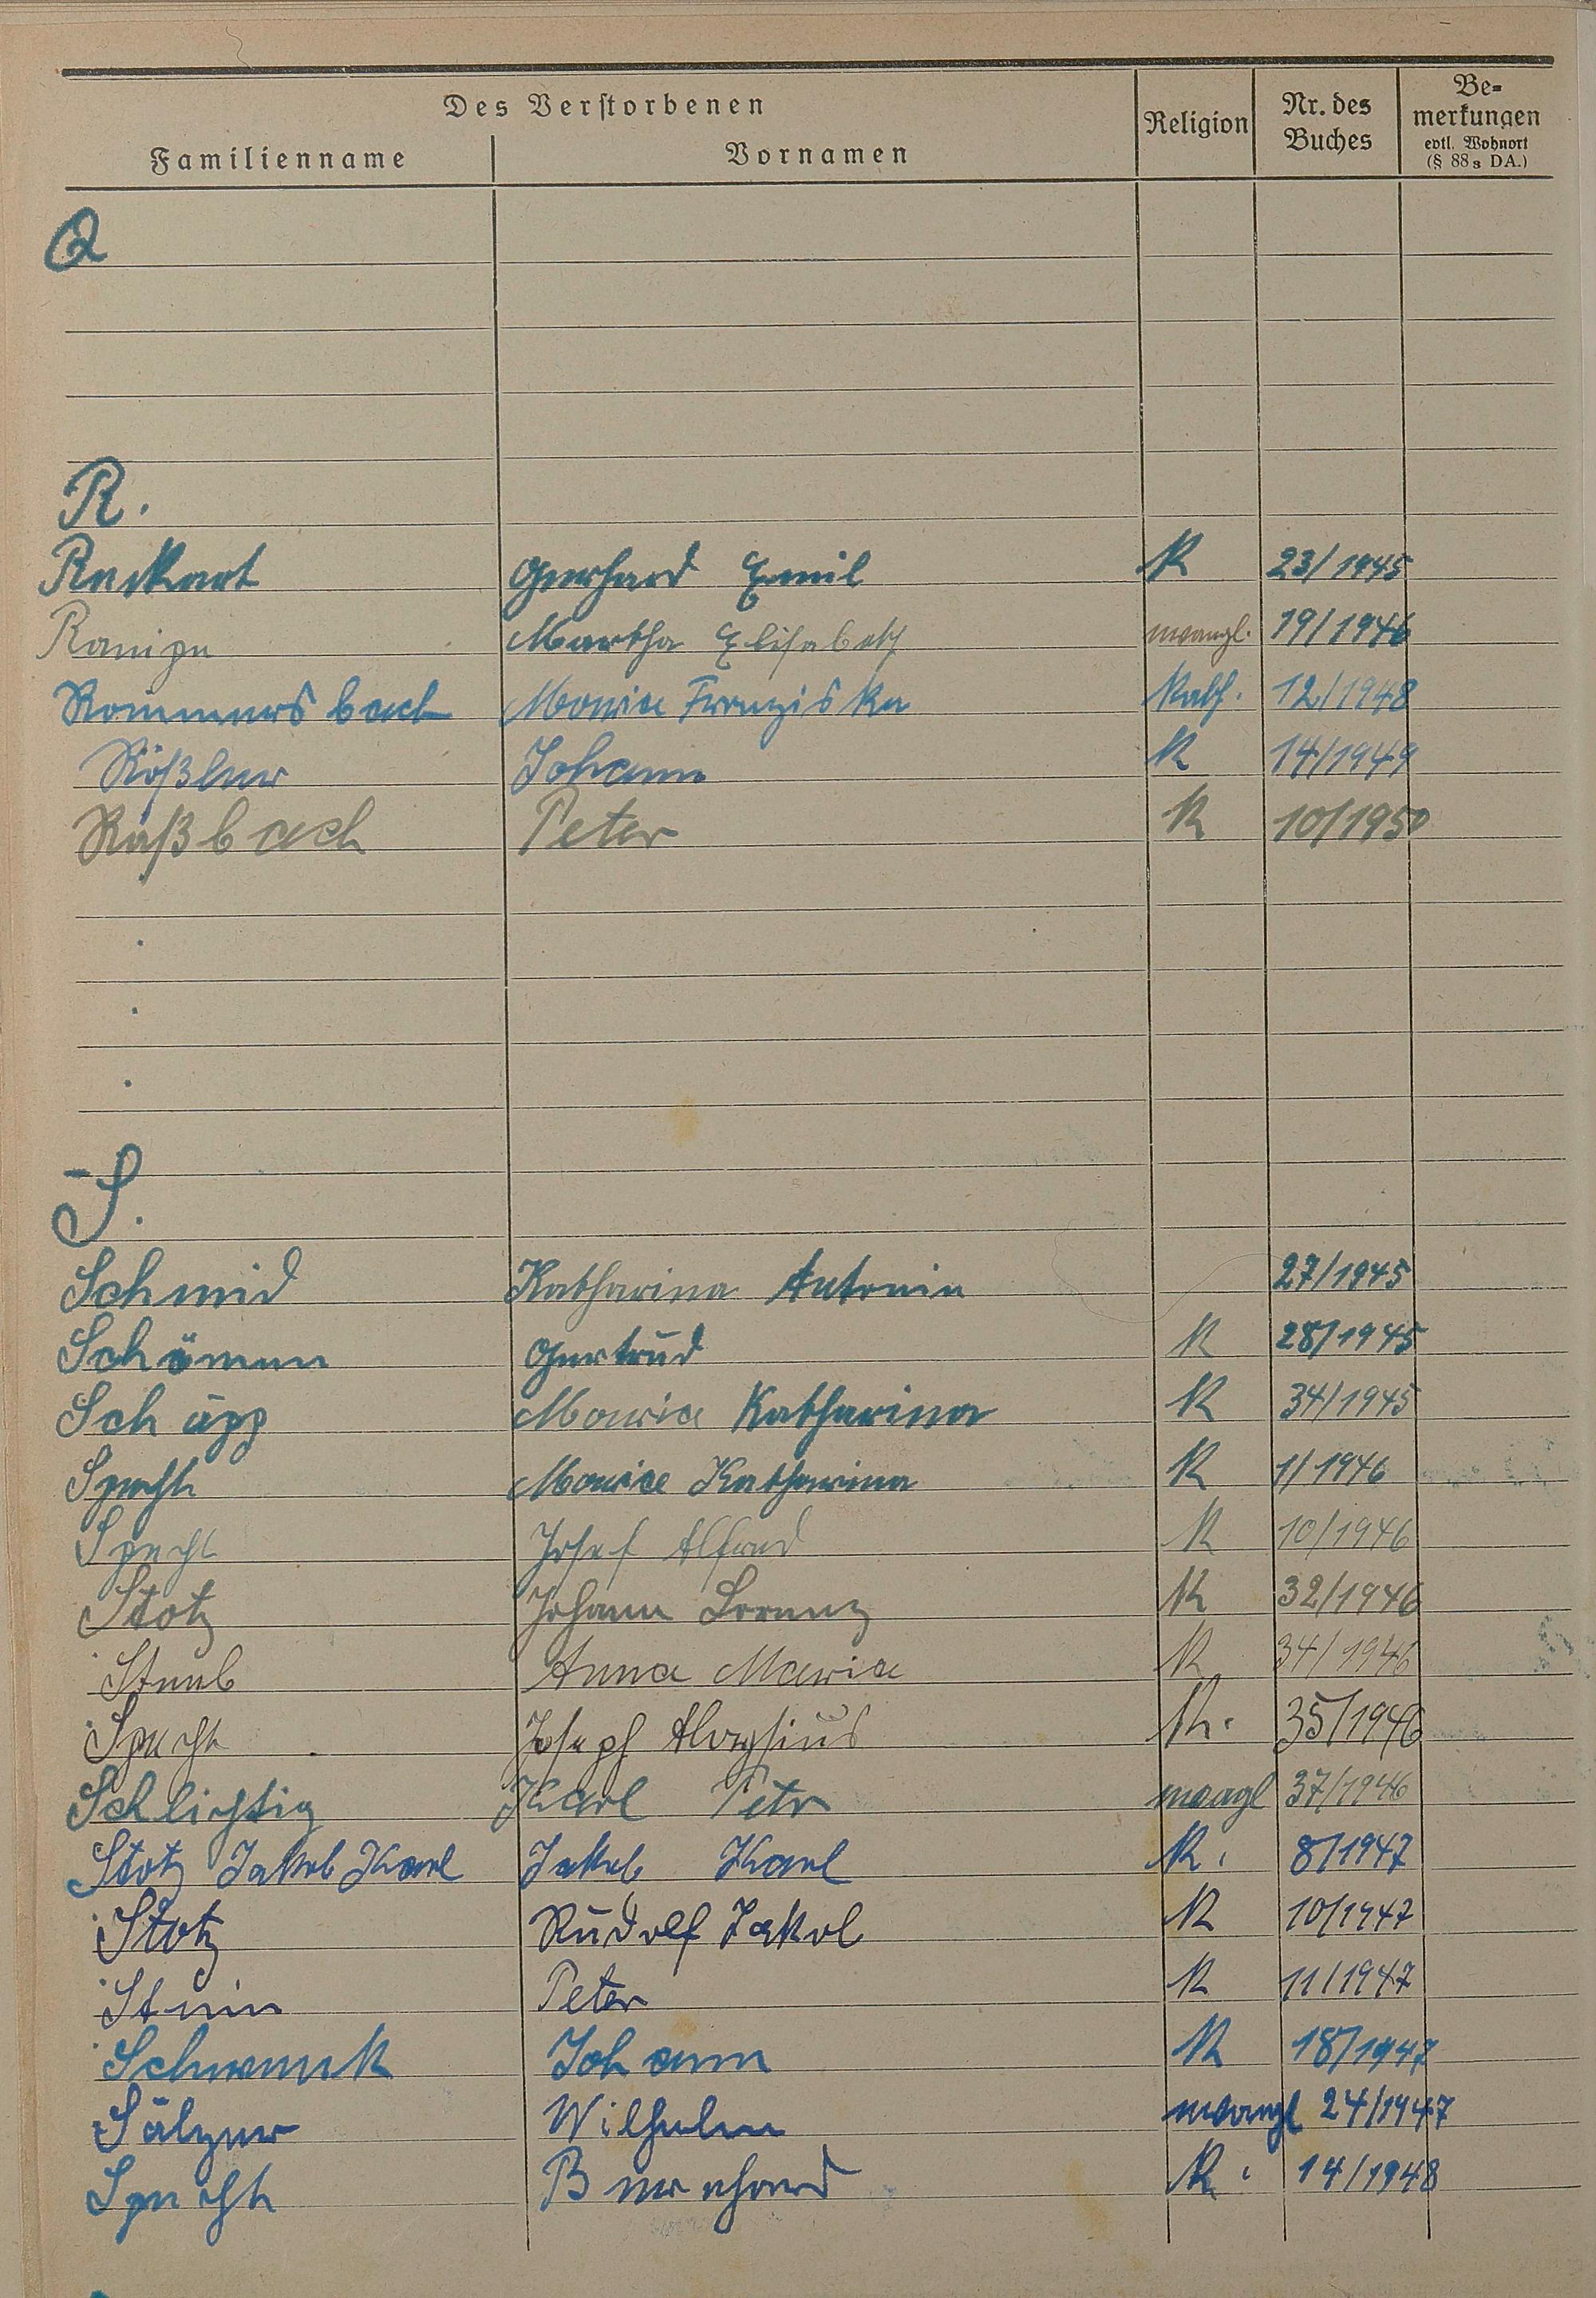 Des Verstorbenen
Familienname Vornamen Religion Nr. des Buches Be-merkungen evtl. Wohnort (§ 88₃ DA.)
Q
R.
Reckart Gerhard Emil K 23/1945
Martha Elisabeth evangl. 19/1946
Rommersbach Maria Franziska Kath. 12/1948
Rößler Johann K 14/1949
Raßbach Peter K 10/1950
S.
Schmid Katharina Antonin 27/1945
Schömen Gertrud K 28/1945
Schäpp Maria Katharina K 34/1945
Specht Maria Katharina K 1/1946
Specht Josef Alfred K 10/1946
Stotz Johann Lorenz K 32/1946
Steeb Anna Maria K 34/1946
Specht Joseph Aloysius K. 35/1946
Schlichtig Karl Petr evagl 37/1946
Stotz Jakob Karl Jakob Karl K. 8/1947
Stotz Rudolf Jakob K 10/1947
Stein Peter K 11/1947
Schwenk Johann K 18/1947
Sälzer Wilhelm evangl 24/1947
Specht Bernhard K. 14/1948